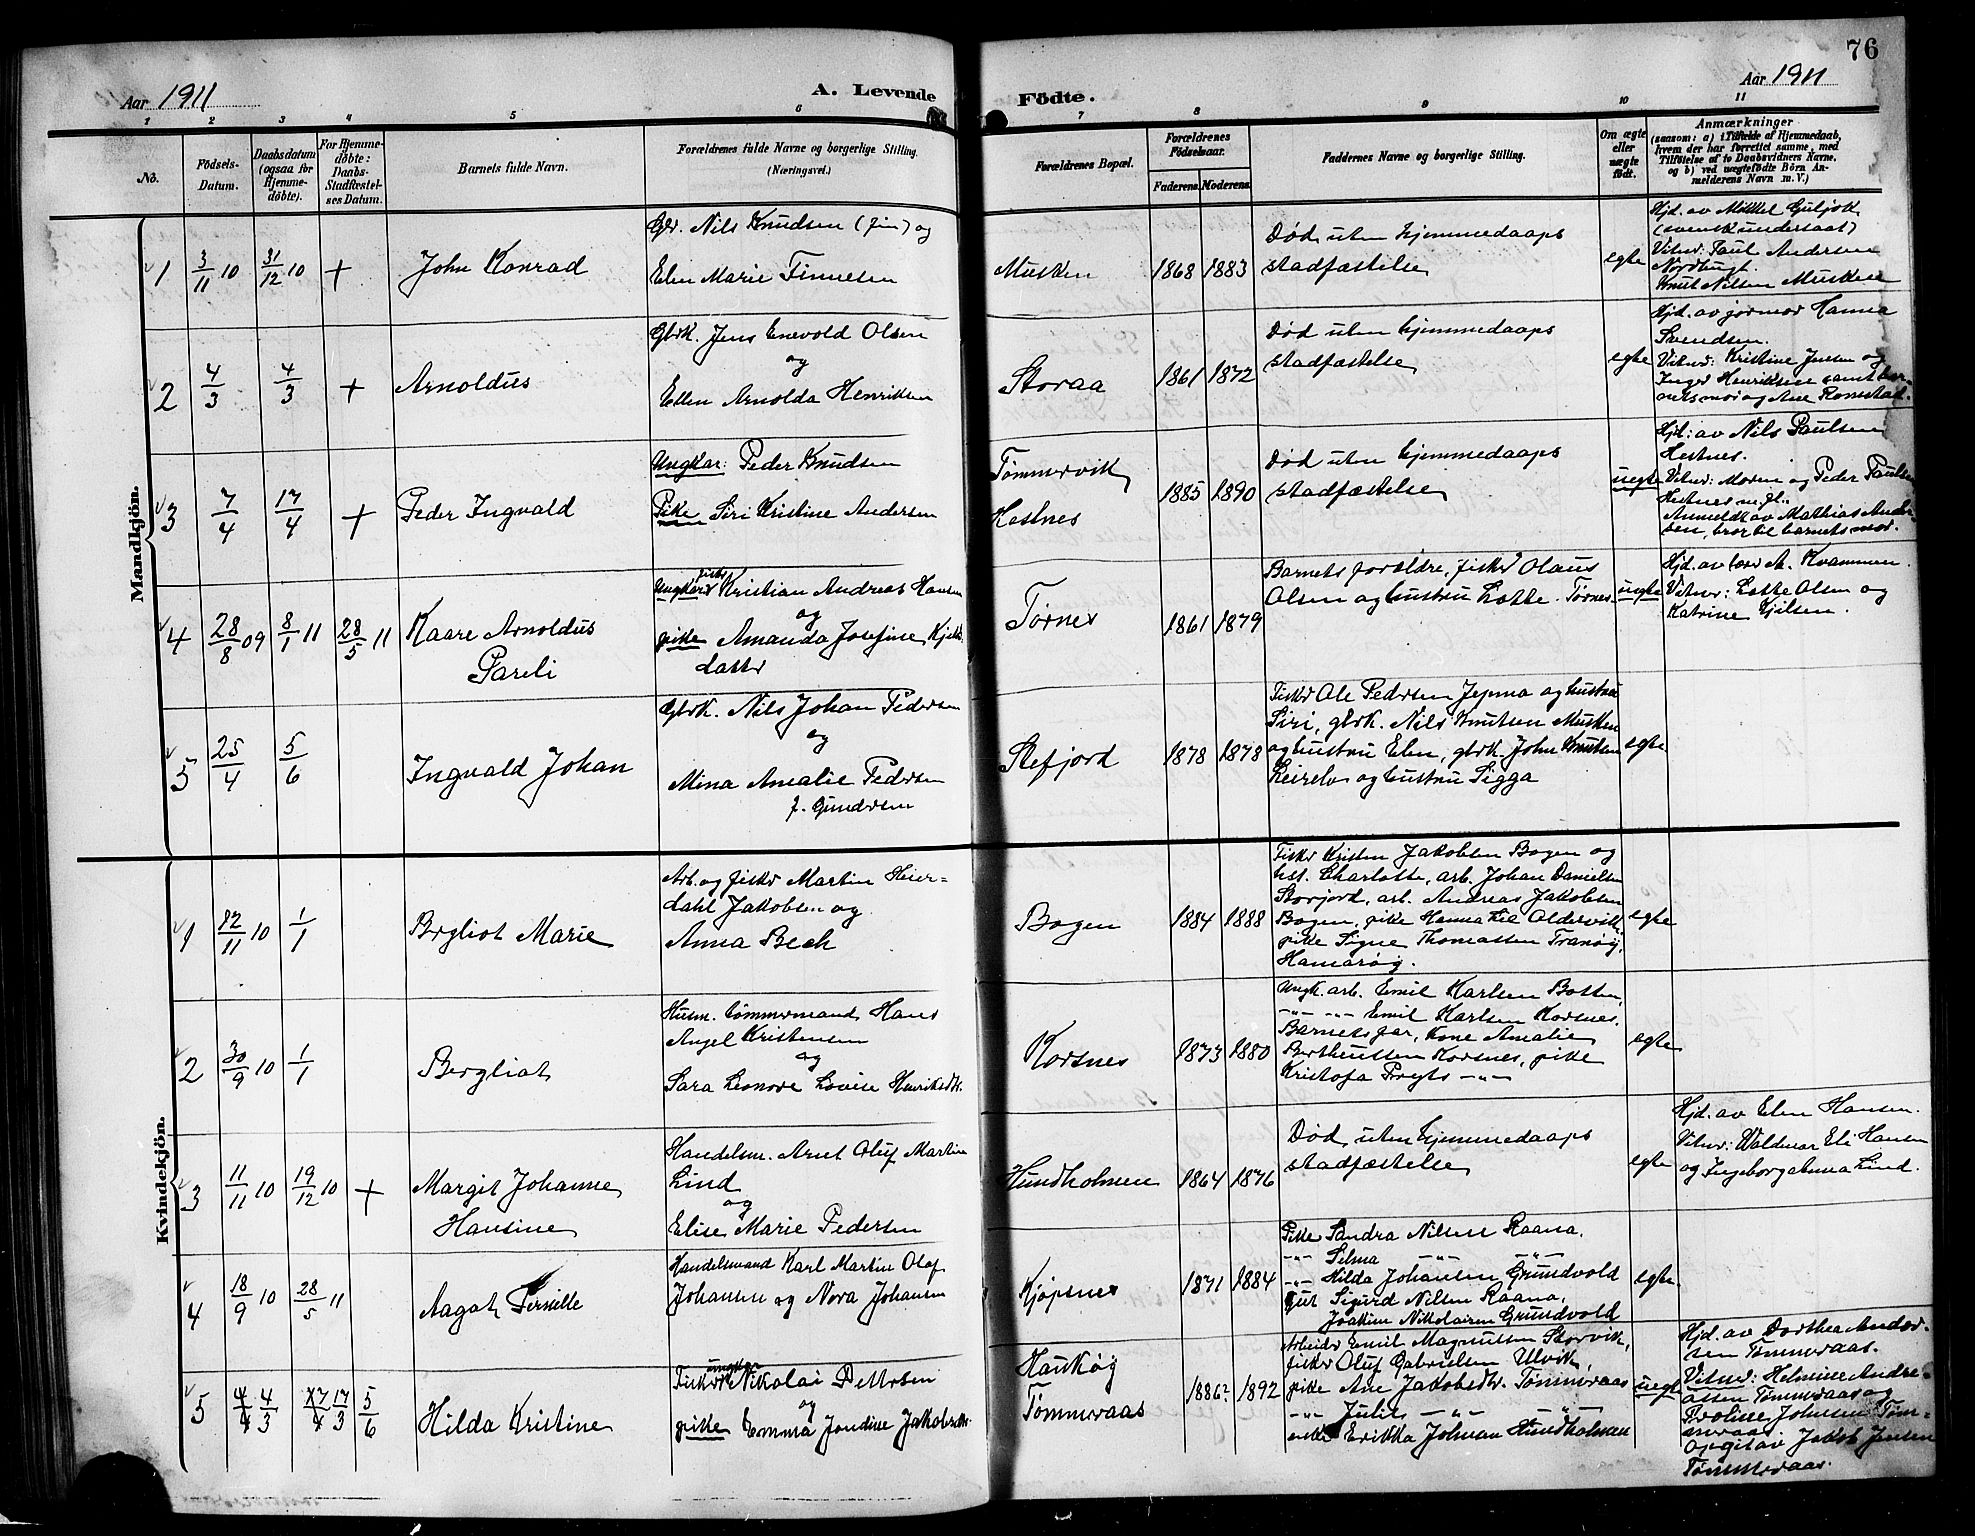 76
Aar 1911
A. Levende
Födte.
Aar 1911
1 2 3 4 5 6 7 8 9 10 11
No.
Födsels-
Datum.
Daabsdatum
(ogsaa for
Hjemme-
döbte).
For Hjemme-
döbte:
Daabs-
Stadfæstel-
ses Datum.
Barnets fulde Navn.
Forældrenes fulde Navne og borgerlige Stilling.
(Næringsvei.)
Forældrenes Bopæl.
Forældrenes
Födselsaar.
Faderens. Moderens.
Faddernes Navne og borgerlige Stilling.
Om ægte
eller
uægte
født.
Anmærkninger
(saasom: a) i Tilfælde af Hjemmedaab,
hvem der har forrettet samme, med
Tilföielse af to Daabsvidners Navne,
og b) ved uægtefödte Börn An-
melderens Navn m. V.)
Mandkjön.
1 3/11 10 31/12 10 + John Konrad
Glr. Nils Knudsen (fin) og
Elen Marie Finnesen
Musken 1868 1883
Død uten hjemmedaaps
stadfæstelse
egte
Hjd. av Mikkel Guljok
(svensk undersaat)
Vitner: Paul Andersen
Nordbugt.
Knut Nilsen Musken
2 4/3 4/3 + Arnoldus
Gbrk. Jens Enevold Olsen
og
Ellen Arnolda Henriksen
Storaa 1861 1872
Død uten hjemmedaaps
stadfæstelse
egte
Hjd. av jormor Hanna
Svendsen.
Vitner: Kristine Jensen og
Inger Henriksen samt bar-
nets mor og Ane Romstad.
3 7/4 17/4 + Peder Ingvald
Ungkar: Peder Knudsen
Pike Siri Kristine Andersen
Tømmervik
Hestnes
1885 1890
Død uten hjemmedaaps
stadfæstelse
uegte
Hjd: av Nils Paulsen
Hestnes.
Vitner: Moren og Peder Paulsen
Hestnes m. fl.
Anmeldt av Mathias Ander-
sen, bror til barnets mor.
4 28/8 09 8/1 11 28/5 11 Kaare Arnoldus
Pareli
Ungkar fisker Kristian Andreas Hansen
og
pike Amanda Josefine Kjels
datter
Tørnes 1861 1879
Barnets forældre, fisker Olaus
Olsen og hustru Lotte. Tørnes.
uegte
Hjd. av lær A. Kvammen.
Vitner: Lotte Olsen og
Katrine Kjelsen.
5 25/4 5/6 Ingvald Johan
Gbrk. Nils Johan Pedersen
og
Mina Amalie Pedersen
f. Gundersen
Stefjord 1878 1878
Fisker Ole Pedersen Jepma og hustru
Siri, gbrk. Nils Knutsen Musken
og hustru Elen, gbrk. John Knutsen
Leirelv og hustru Sigga
egte
Kvindekjön.
1 /11 10 1/1 Bergliot Marie
Arb. og fisker Martin Heier-
dahl Jakobsen og
Anna Bech
Bogen 1884 1888
Fisker Kristen Jakobsen Bogen og
hst. Charlotte, arb. Johan Danielsen
Storjord, arb. Andreas Jakobsen
Bogen, pike Hanna Lie Oldervik,
pike Signe Thomassen Tranøy,
Hamarøy.
egte
2 30/9 10 1/1 Bergliot
Husm. tømmermand Hans
Angel Kristensen
og
Sara Leonore Lovise Henriksdtr.
Korsnes 1873 1880
Ungk. arb. Emil Karlsen Botten,
-"- -"- Emil Karlsen Korsnes.
Barnets far, Kone Amalie
Bertheussen Korsnes, pike
Kristofa Pryts -"-
egte
3 11/11 10 19/12 10 + Margit Johanne
Hansine
Handelsm. Arnt Oluf Martin
Lind
og
Elise Marie Pedersen
Hundholmen 1864 1876
Død uten hjemmedaaps
stadfæstelse
egte
Hjd. av Elen Hansen.
Vitner: Waldemar Eli Hansen
og Ingeborg Anna Lind.
4 18/9 10 28/5 11 Aagot Pernille
Handelsmand Karl Martin Olaf
Johansen og Nora Johansen
Kjøpsnes 1871 1884
Pike Sandra Nilsen Raana.
-"- Selma -"- -"-
-"- Hilda Johansen Grundvold
Gut Sigurd Nilsen Raana,
Joakim Nikolaisen Grundvold
egte.
5 4/4 4/3 17/4 17/3 5/6 Hilda Kristine
Fisker ungkar Nikolai Pettersen
og
pike Emma Jondine Jakobsdtr.
Haukøy
Tømmeraas
1886? 1892
Arbeider Emil Magnussen Storvik,
fisker Oluf Gabrielsen Ulvik,
pike Ane Jakobsdtr. Tømmeraas
-"- Julie -"- -"-
enke Erikka Johnsen Hundholmen
uegte
Hjd. av Dorthea Ander-
sen Tømmeraas.
Vitner: Helmine Andre-
assen Tømmeraas og
Proline Johnsen Tøm-
meraas
Opgit av Jakob Jensen
Tømmeraas.